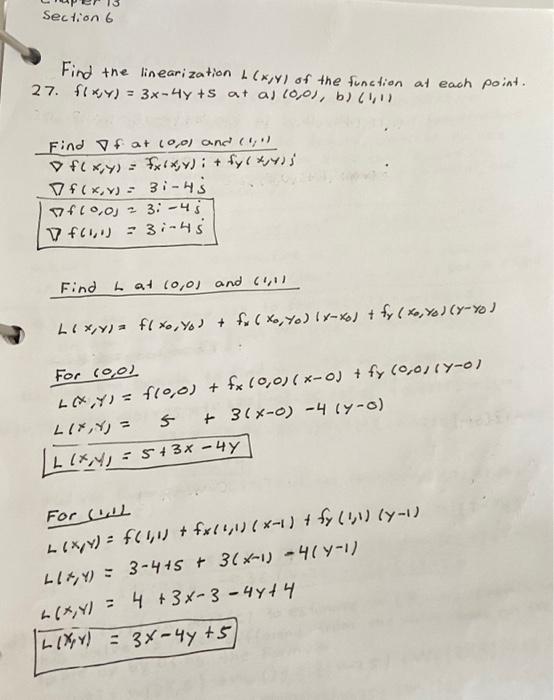 Chapter 13
Section 6
Find the linearization L(x,y) of the function at each point.
27. f(x,y) = 3x-4y+5 at a) (0,0), b) (1,1)
Find ∇f at (0,0) and (1,1)
∇f(x,y) = fx(x,y)i + fy(x,y)j
∇f(x,y) = 3i-4j
∇f(0,0) = 3i-4j
∇f(1,1) = 3i-4j
Find L at (0,0) and (1,1)
L(x,y) = f(x0,y0) + fx(x0,y0)(x-x0) + fy(x0,y0)(y-y0)
For (0,0)
L(x,y) = f(0,0) + fx(0,0)(x-0) + fy(0,0)(y-0)
L(x,y) = 5 + 3(x-0) -4(y-0)
L(x,y) = 5+3x-4y
For (1,1)
L(x,y) = f(1,1) + fx(1,1)(x-1) + fy(1,1)(y-1)
L(x,y) = 3-4+5 + 3(x-1) -4(y-1)
L(x,y) = 4 +3x-3 -4y+4
L(x,y) = 3x-4y+5